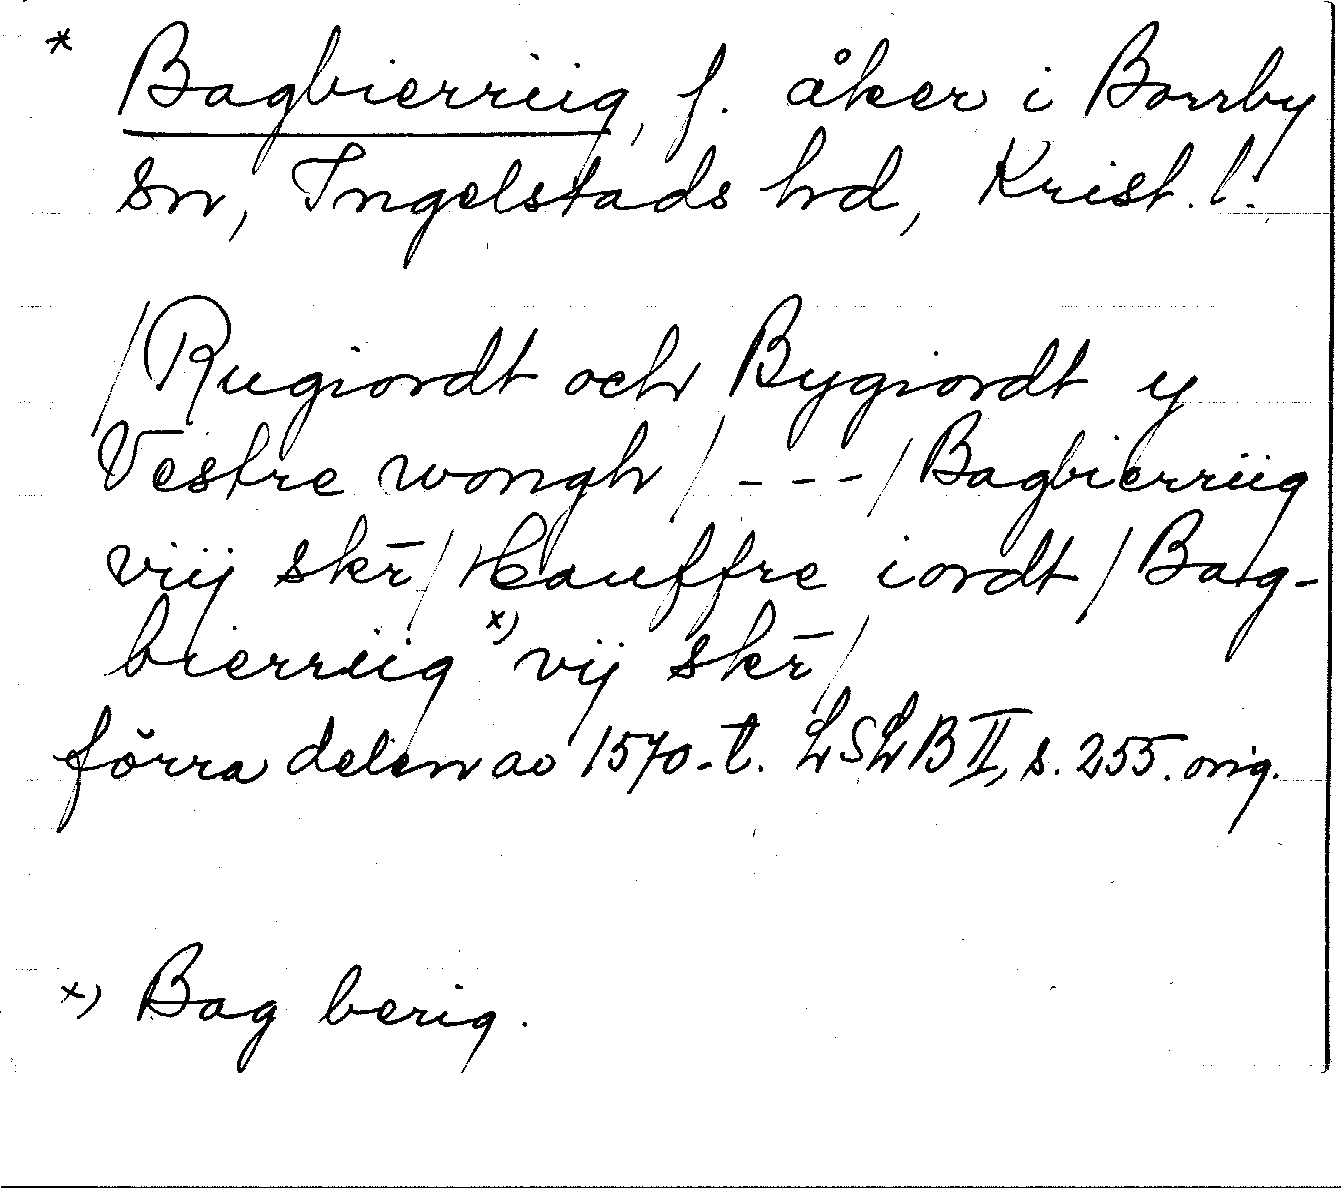 * Bagbierriig, f. åker i Borrby
sn, Ingelstads hd, Krist. l.
/Rugiordt och Bygiordt y
Vestre wongh/ - - - /Bagbierriig
viij skr̄/ Hauffre iordt / Bag-
bierriig x) vij skr̄/
förra delen av 1570-t. LSLB II, s. 255. orig.
x) Bag berig.